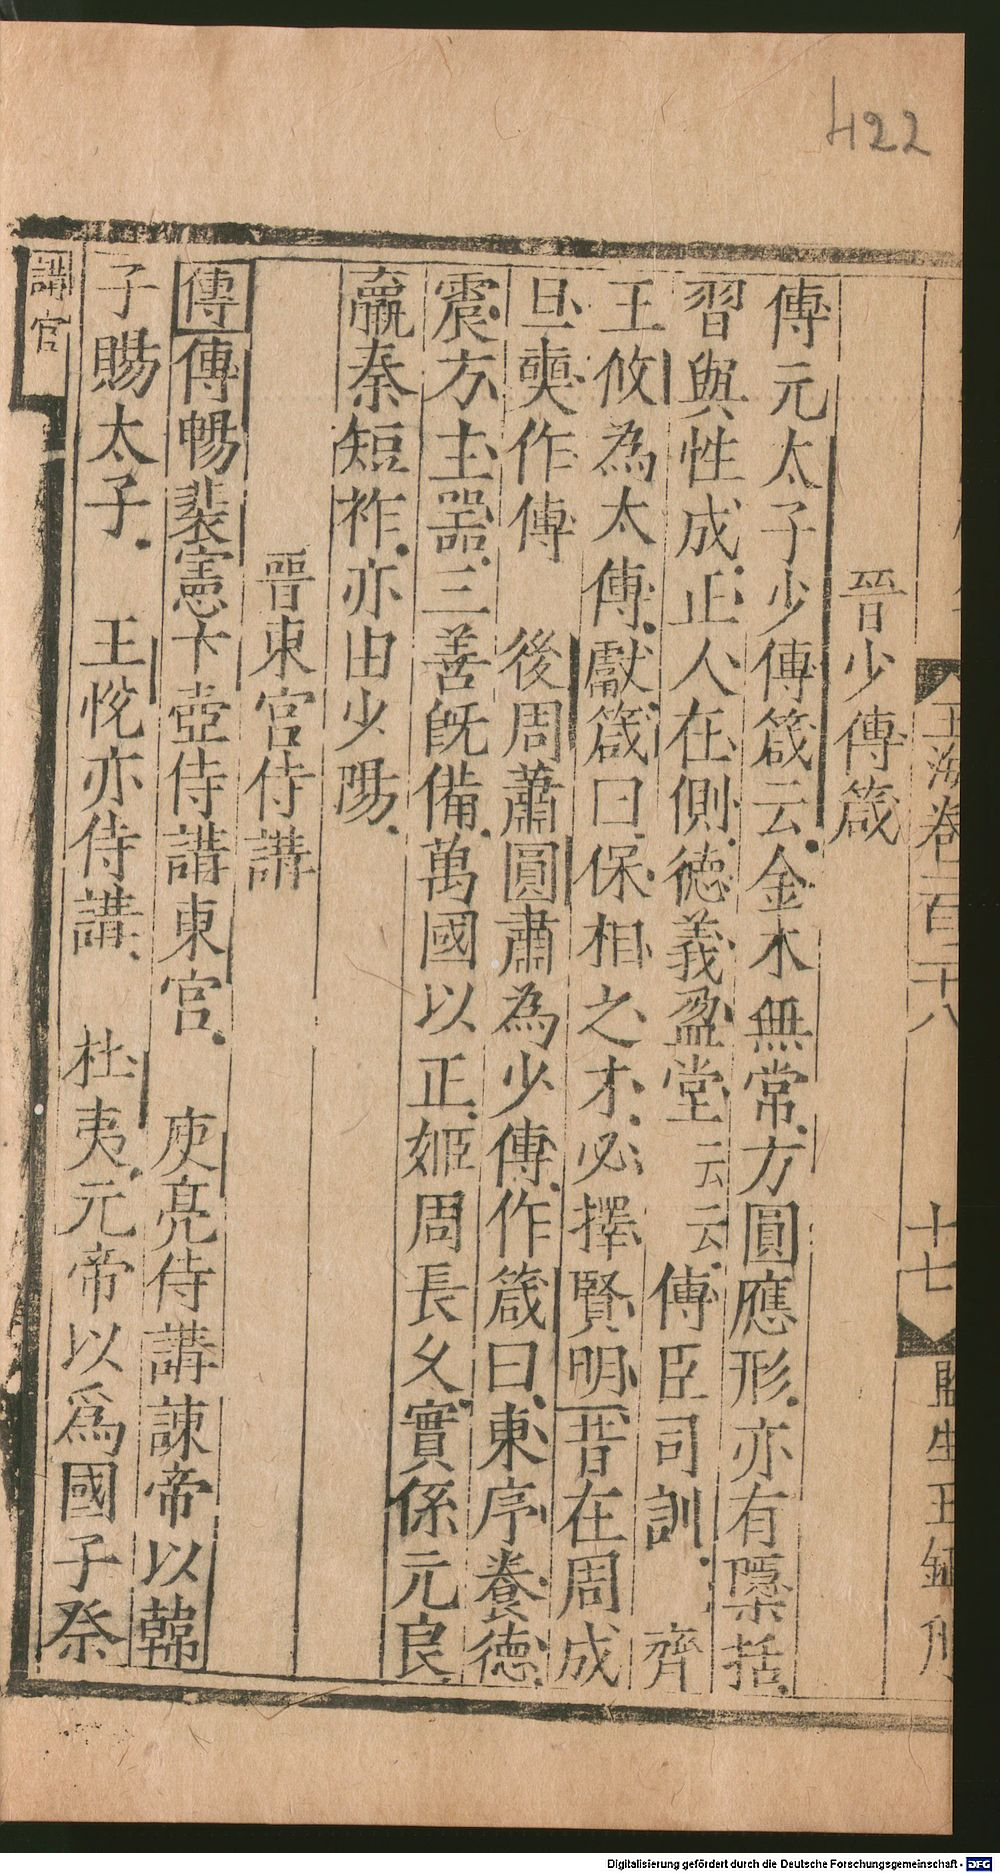 422
玉海卷一百二十八
十七
晉少傅箴
傅元太子少傅箴云金木無常方圓應形亦有檃括
習與性成正人在側德義盈堂云云傅臣司訓 齊
王攸為太傅獻箴曰保相之才必擇賢明昔在周成
旦奭作傅 後周蕭圓肅為少傅作箴曰東序養德
震方主器三善旣備萬國以正姬周長久實係元良
嬴秦短祚亦由少陽
晉東宮侍講
傳傅暢裴憲卞壺侍講東宮 庾亮侍講諫帝以韓
子賜太子 王悅亦侍講 杜夷元帝以爲國子祭
講官
Digitalisierung gefördert durch die Deutsche Forschungsgemeinschaft - DFG